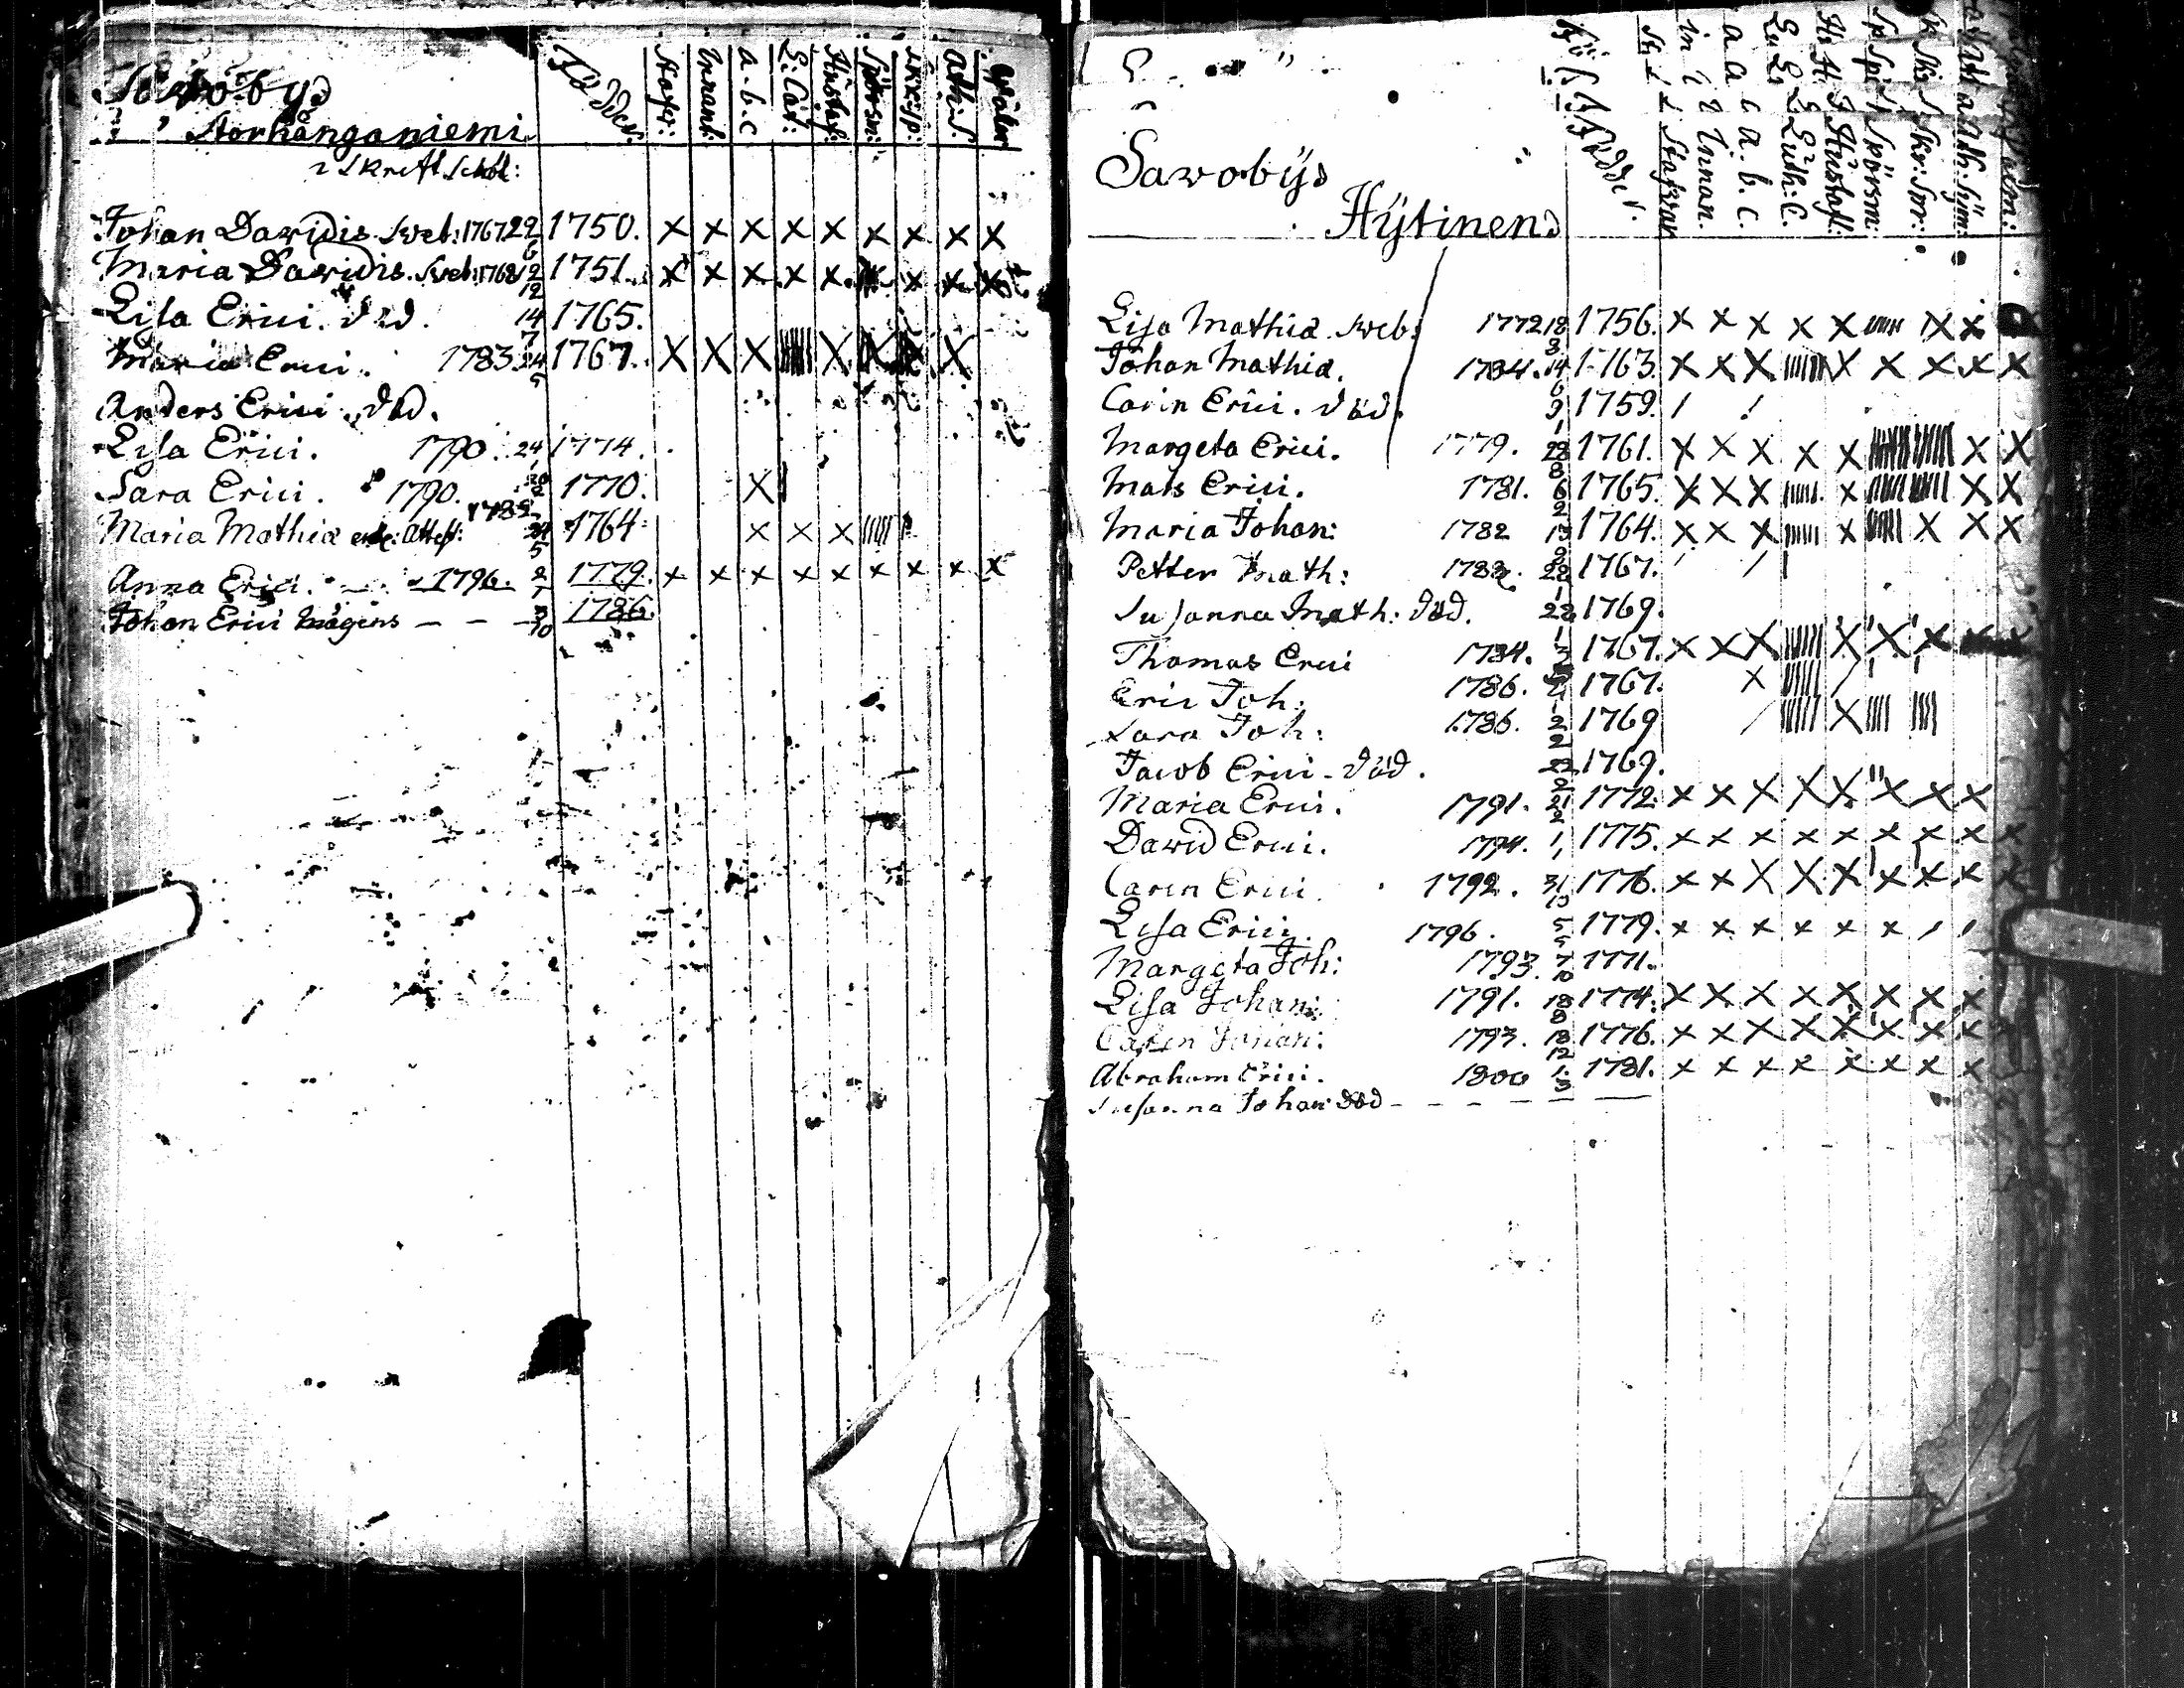 Sawobys
Storhånganiemi
Född: Stafw: Innant: a-b-c L: Cat: Hustaf: Spörsm: Skr: sp: Ath: S. Wäln
Johan Davidis Sveb: 1767 22/6 1750. × × × × × × × × ×
Maria Davidis. Sveb: 1768 12/12 1751. × × × × × × × × ×
Lisa Erici. död. 14/7 1765.
Maria Erici. 1783 24/5 1767. × × × |||||| × × × ×
Anders Erici. död.
Lisa Erici. 1790. 24/1 1774.
Sara Erici. 1790. 1770. ×
Maria Mathiæ Attest: 1782 24/5 1764 × × × |||||
Anna Erici. 1796. 1779. × × × × × × × × ×
Johan Erici Mågens — — — 3/10 1786.
Sawobys
Hytinens
Födder. Stafwar Innan. a. b. c. Luth: C. Hustafl: Spörsm: Skr: Spr: Ath: Sym:
Lisa Mathiæ. Sveb: 1772 18/3 1756. × × × × × ||||| × ×
Johan Mathiæ. 1784. 14/6 1763. × × × |||||| × × × × ×
Carin Erici. död. 9/1 1759. / /
Margeta Erici. 1779. 28/8 1761. × × × × × × ×
Mats Erici. 1781. 6/2 1765. × × × ||||| × × ×
Maria Johan: 1782 13/9 1764. × × × ||||| × |||||| × × ×
Petter Math: 1783. 28/1 1767. / /
Susanna Math: död. 22/1 1769.
Thomas Erici 1784. 1767. × × × |||||| × × ×
Eric Joh: 1786. 1767. × |||||| /
Sara Joh: 1786. 2/2 1769 / |||||| × |||| ||||
Jacob Erici - död. 1769.
Maria Erici. 1791. 21/2 1772. × × × × × × × ×
David Erici. 1794. 1/1 1775. × × × × × × × × ×
Carin Erici. 1792. 31/10 1776. × × × × × × × × ×
Lisa Erici. 1796. 5/5 1779. × × × × × × / /
Margeta Joh: 1793. 7/10 1771.
Lisa Johan: 1791. 18/8 1774. × × × × × × × ×
Carin Johan: 1793. 18/12 1776. × × × × × × × ×
Abraham Erici. 1800 1/3 1781. × × × × × × × ×
Susanna Johan: död — — — — — —